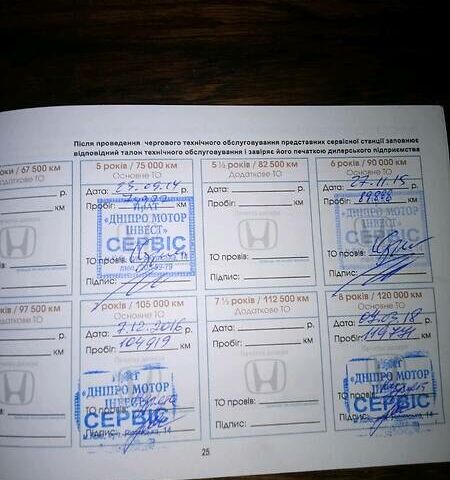 Після проведення чергового технічного обслуговування представник сервісної станції заповнює
відповідний талон технічного обслуговування і завіряє його печаткою дилерського підприємства
роки / 67 500 км
Додаткове ТО
р.
км
5 років / 75 000 км
Основне ТО
Дата: 25.09.14 р.
Пробіг: км
«ДНІПРО МОТОР
ІНВЕСТ»
СЕРВІС
ТО провів:
Підпис:
5 ½ років / 82 500 км
Додаткове ТО
Дата: р.
Пробіг: км
ТО провів:
Підпис:
6 років / 90 000 км
Основне ТО
Дата: 27.11.15 р.
Пробіг: км
«ДНІПРО МОТОР
ІНВЕСТ»
СЕРВІС
ТО провів:
Підпис:
/ 97 500 км
Додаткове ТО
р.
км
років / 105 000 км
Основне ТО
Дата: 7.12.2016 р.
Пробіг: 104919 км
«ДНІПРО МОТОР
ІНВЕСТ»
СЕРВІС
ТО провів:
Підпис:
7 ½ років / 112 500 км
Додаткове ТО
Дата: р.
Пробіг: км
ТО провів:
Підпис:
8 років / 120 000 км
Основне ТО
Дата: р.
Пробіг: 119731 км
«ДНІПРО МОТОР
ІНВЕСТ»
СЕРВІС
ТО провів:
Підпис:
25